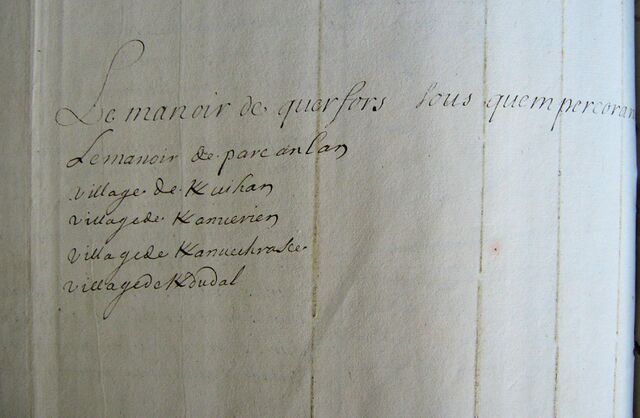 Le manoir de querfors sous quempercoran
Le manoir de parcanlan
village de Kuihan
village de Kanuerien
village de Kanuechraste
village de Kdudal